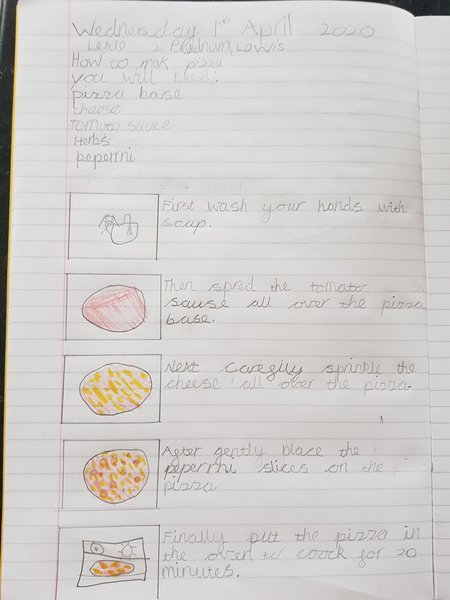 Wednesday 1st April 2020
Lewis
How to mak pizza
you will need:
pizza base
cheese
tomato sauce
Herbs
peperrni
First wash your hands with
soap.
Then spred the tomater
sause all over the pizza
base.
Next caregily sprinkle the
cheese all over the pizza.
After gently place the
peperrni slices on the
pizza.
Finally put the pizza in
the oven to coock for 20
minutes.